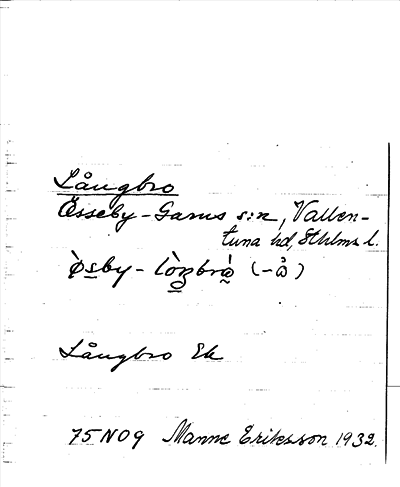 Långbro
Össeby-Garns s:n, Vallen-
tuna hd, Sthlms l.
òsby - lòŋbrò̀ (-ω̉)
Långbro Ek
75 NO9 Manne Eriksson 1932.